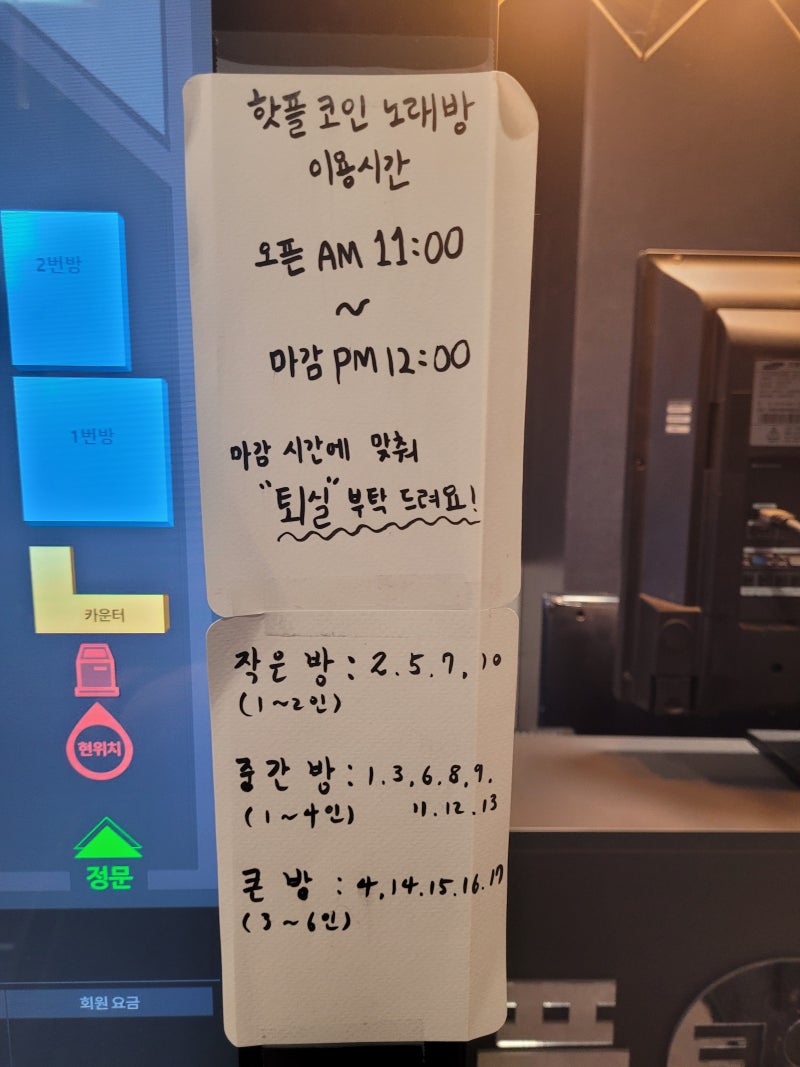 핫플 코인 노래방
이용시간
오픈 AM 11:00
~
마감 PM 12:00
마감 시간에 맞춰
"퇴실" 부탁 드려요!
작은 방 : 2. 5. 7, 10
(1~2인)
중간 방 : 1. 3, 6. 8, 9.
(1~4인) 11. 12. 13
큰 방 : 4, 14. 15. 16. 17
(3~6인)
2번방
1번방
카운터
현위치
정문
회원 요금